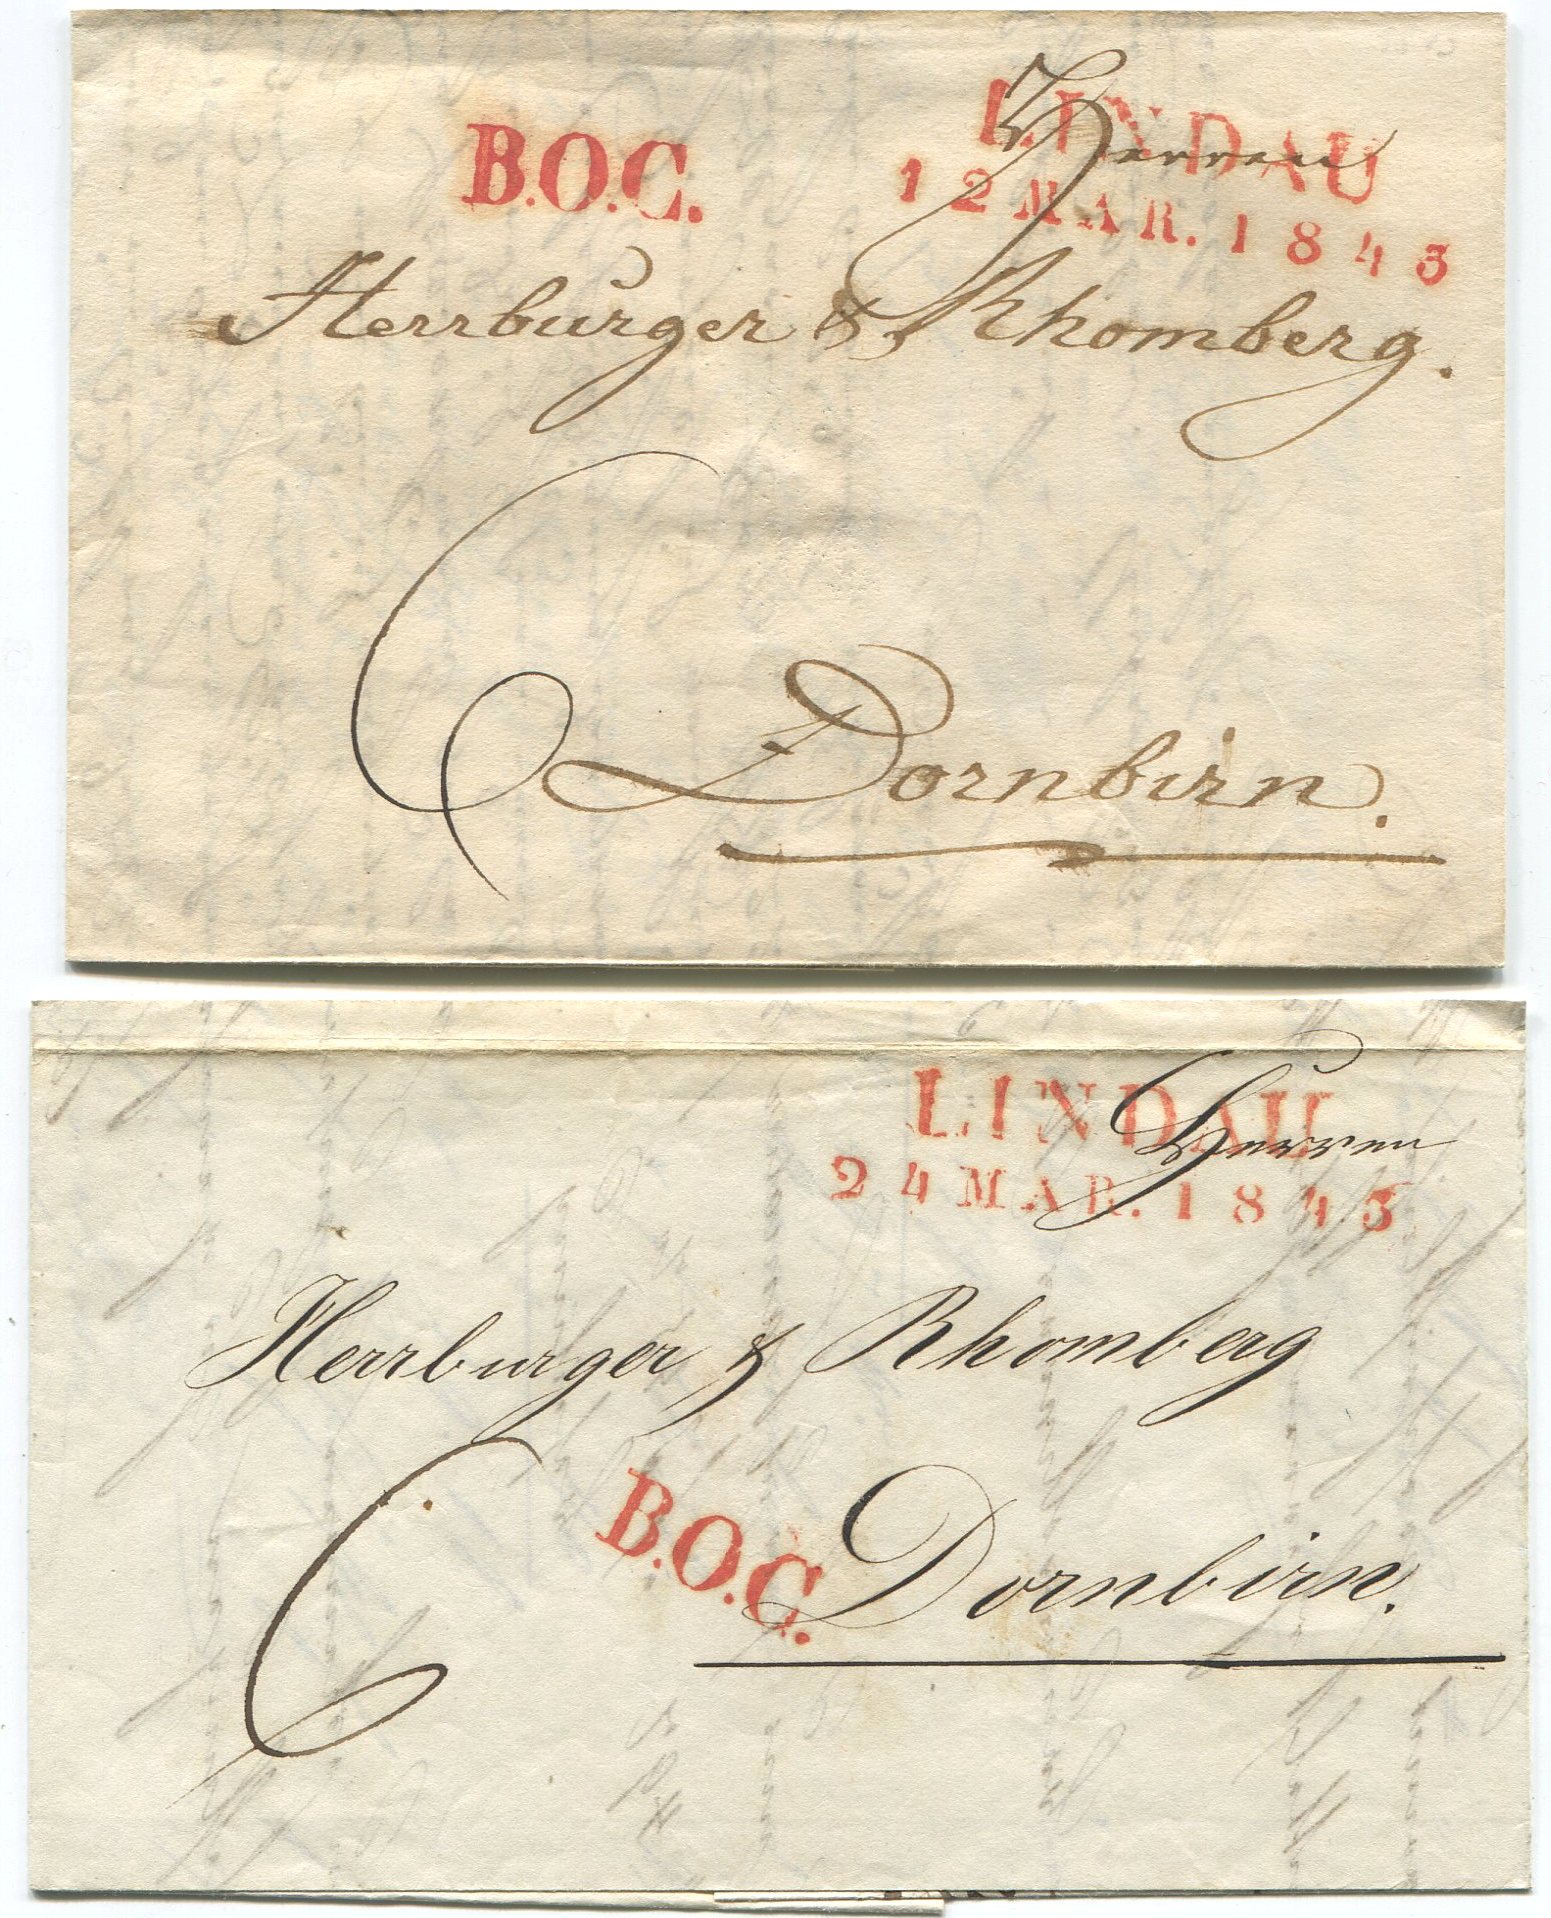 B.O.C.
LINDAU
12 MAR. 1843
Herren
Herrburger & Rhomberg.
6
Dornbirn.
LINDAU
24 MAR. 1843
Herren
Herrburger & Rhomberg
6
B.O.C.
Dornbirn.